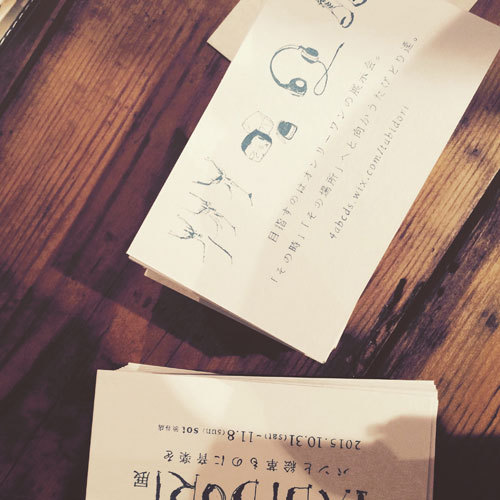 目指すのはオンリーワンの展示会。
「その時」「その場所」へと向かうたびどり達。
4abcds.wix.com/tabidori
TABIDORI 展
パンと絵草ものに音楽を
2015.10.31(sat)-11.8(sun) soi